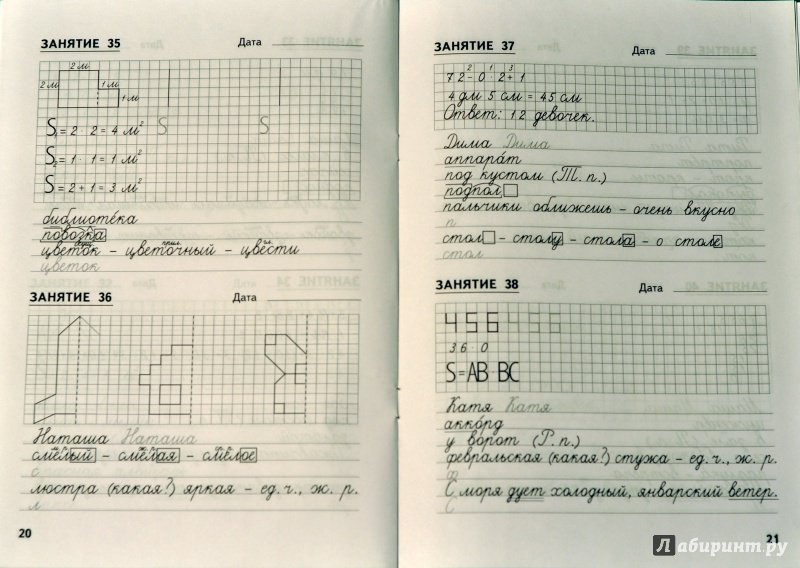 ЗАНЯТИЕ 35 Дата
2 м
2 м 1 м
1 м
S₁ = 2 · 2 = 4 м² S S
S₂ = 1 · 1 = 1 м²
S = 2 + 1 = 3 м²
библиотéка
повозка
цветок – цветочный – цвести
цветок
ЗАНЯТИЕ 36 Дата
Наташа Наташа
смелый – смелая – смелое
с
люстра (какая?) яркая – ед. ч., ж. р.
л
20
ЗАНЯТИЕ 37 Дата
2 1 3
72 – 0 · 2 + 1
4 дм 5 см = 45 см
Ответ: 12 девочек.
Дима Дима
аппарáт
под кустом (Т. п.)
подпол
пальчики оближешь – очень вкусно
п
стол – столу – стола – о столе
стол
ЗАНЯТИЕ 38 Дата
456 456
36 · 0
S = AB · BC
Катя Катя
аккóрд
у ворот (Р. п.)
февральская (какая?) стужа – ед. ч., ж. р.
ф
С моря дует холодный, январский ветер.
С
21
Лабиринт.ру